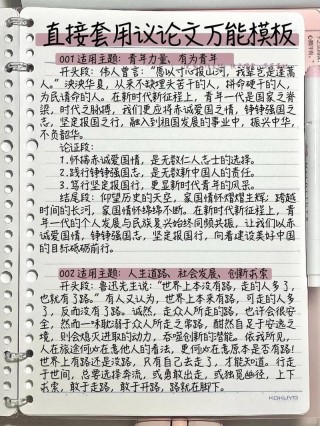 直接套用议论文万能模板
001 适用主题：青年力量、有为青年
开头段：伟人曾言：“愿以寸心报山河，我辈岂是蓬蒿
人。”泱泱华夏，从来不缺埋头苦干的人，拼命硬干的人，
为民请命的人。在新时代新征程上，青年一代是国家之脊
梁，时代之脉搏，我们更应将赤诚爱国之情，铮铮强国之
志，坚定报国之行，融入到祖国发展的事业中，振兴中华，
不负韶华。
论证段：
1.怀揣赤诚爱国情，是无数仁人志士的选择。
2.践行铮铮强国志，是无数新中国人的责任。
3.笃行坚定报国行，更显新时代青年的风采。
结尾段：仰望历史的天空，家国情怀熠熠生辉；跨越
时间的长河，家国情怀绵绵不断。在新时代新征程上，青
年一代的个人发展与民族复兴始终同频共振，让我们以赤
诚爱国情，铮铮强国志，坚定报国行，向着建设美好中国
的目标砥砺前行。
002 适用主题：人生道路、社会发展、创新求索
开头段：鲁迅先生说：“世界上本没有路，走的人多了，
也就有了路。”有人又认为，世界上本来有路，可走的人多
了，反而没有了路。诚然，走众人所走的路，也许会很安
全，然而一味耽溺于众人所走之常路，酣然自足于安逸之
境，则会熄灭进取的动力，吞噬创新的潜能。依我所见，
人在旅途何必在意他人的看法，更何必在意原本是否有路！
世界上有路还是没路，只有自己去走了，才能知道。行走
于世间，总要选择奔流，或勇敢出走，或独觅幽径，上下
求索，敢于走路，敢于开路，路就在脚下。
KOKUYO